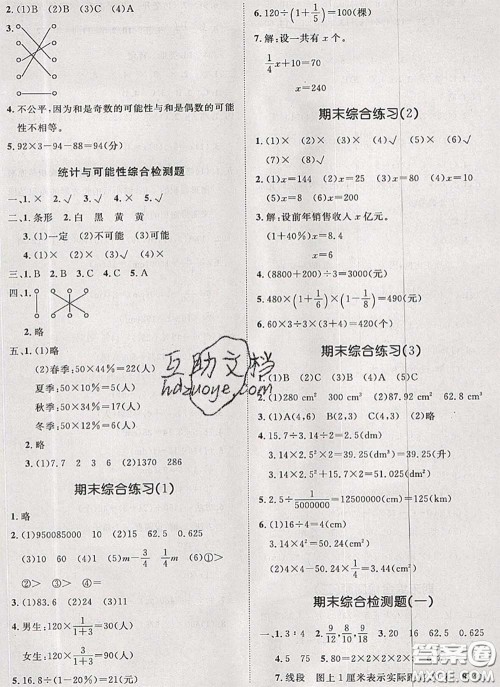 2. (1)B (2)B (3)C (4)A
3.
4. 不公平,因为和是奇数的可能性与和是偶数的可能
性不相等。
5. 92×3-94-88=94(分)
统计与可能性综合检测题
一、1.× 2.√ 3.× 4.√ 5.×
二、1.条形 2.白 黑 黄 黄
3.(1)一定 (2)不可能 (3)可能
4.(1)√ (2)× (3)√ (4)×
三、1.B 2.B 3.C 4.A
四、1. 2.
五、1.(1)略
(2)春季:50×44%=22(人)
夏季:50×20%=10(人)
秋季:50×24%=12(人)
冬季:50×12%=6(人)
2.略
3.(1)7.2 6 1.2 (2)1370 286
期末综合练习(1)
1.略
2.(1)950085000 10 15 62.5 0.625
(3)10 60 (4)1 (5)m-3/4 1/4m (6)①>
②> ③= ④>
3.(1)83.6 (2)24 (3)18
4.男生:120×1/(1+3)=30(人)
女生:120×3/(1+3)=90(人)
5.16.8÷(1-20%)=21(元)
6.120÷(1+1/5)=100(棵)
7.解:设一共有x个。
1/4x+10=70
x=240
期末综合练习(2)
1.(1)× (2)√ (3)× (4)√ (5)√
(6)× (7)√
2.(1)x=144 (2)x=125 (3)x=16 (4)x=25
(5)x=8 (6)x=200
3.解:设前年销售收入x亿元。
(1+40%)x=8.4
x=6
4.(8800+200)÷3=3000(元)
5.480×(1+1/6)×(1-1/8)=490(元)
6.60×3÷3×(3+4)=420(千米)
期末综合练习(3)
1.(1)B (2)C (3)B (4)A (5)C
2.(1)280 cm² 300 cm³ (2)87.92 62.8 cm³
3.(1)A(4,6) B(2,2) C(6,2) (2)略
4.15.7÷3.14÷2=2.5(dm)
3.14×2.5²×2=39.25(dm³)=39.25(升)
3.14×2.5²+15.7×2=51.025(dm²)
5.2.5÷1/5000000=12500000(cm)=125(km)
6.(1)16÷4=4(cm)
3.14×4²=50.24(cm²)
(2)3.14×2²×4=50.24(cm³)
期末综合检测题(一)
一、1.3:4 2.9/12,8/10,9/18 4.16 62.5 0.625
7.线段 图上1厘米表示实际距
互助文档
hdzuoye.com